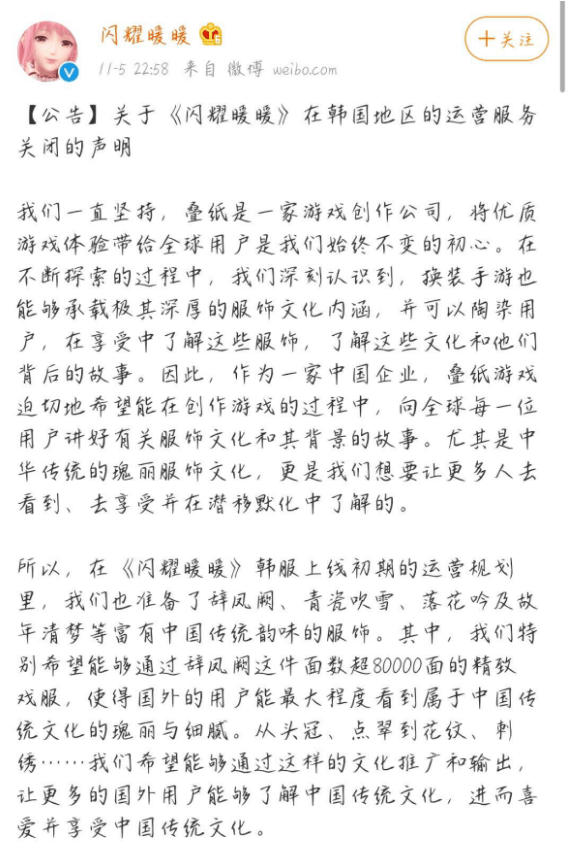 闪耀暖暖
+关注
11-5 22:58 来自 微博 weibo.com
【公告】关于《闪耀暖暖》在韩国地区的运营服务
关闭的声明
我们一直坚持，叠纸是一家游戏创作公司，将优质
游戏体验带给全球用户是我们始终不变的初心。在
不断探索的过程中，我们深刻认识到，换装手游也
能够承载极其深厚的服饰文化内涵，并可以陶染用
户，在享受中了解这些服饰，了解这些文化和他们
背后的故事。因此，作为一家中国企业，叠纸游戏
迫切地希望能在创作游戏的过程中，向全球每一位
用户讲好有关服饰文化和其背景的故事。尤其是中
华传统的瑰丽服饰文化，更是我们想要让更多人去
看到、去享受并在潜移默化中了解的。
所以，在《闪耀暖暖》韩服上线初期的运营规划
里，我们也准备了辞凤阙、青瓷吹雪、落花吟及故
年清梦等富有中国传统韵味的服饰。其中，我们特
别希望能够通过辞凤阙这件面数超80000面的精致
戏服，使得国外的用户能最大程度看到属于中国传
统文化的瑰丽与细腻。从头冠、点翠到花纹、刺
绣……我们希望能够通过这样的文化推广和输出，
让更多的国外用户能够了解中国传统文化，进而喜
爱并享受中国传统文化。